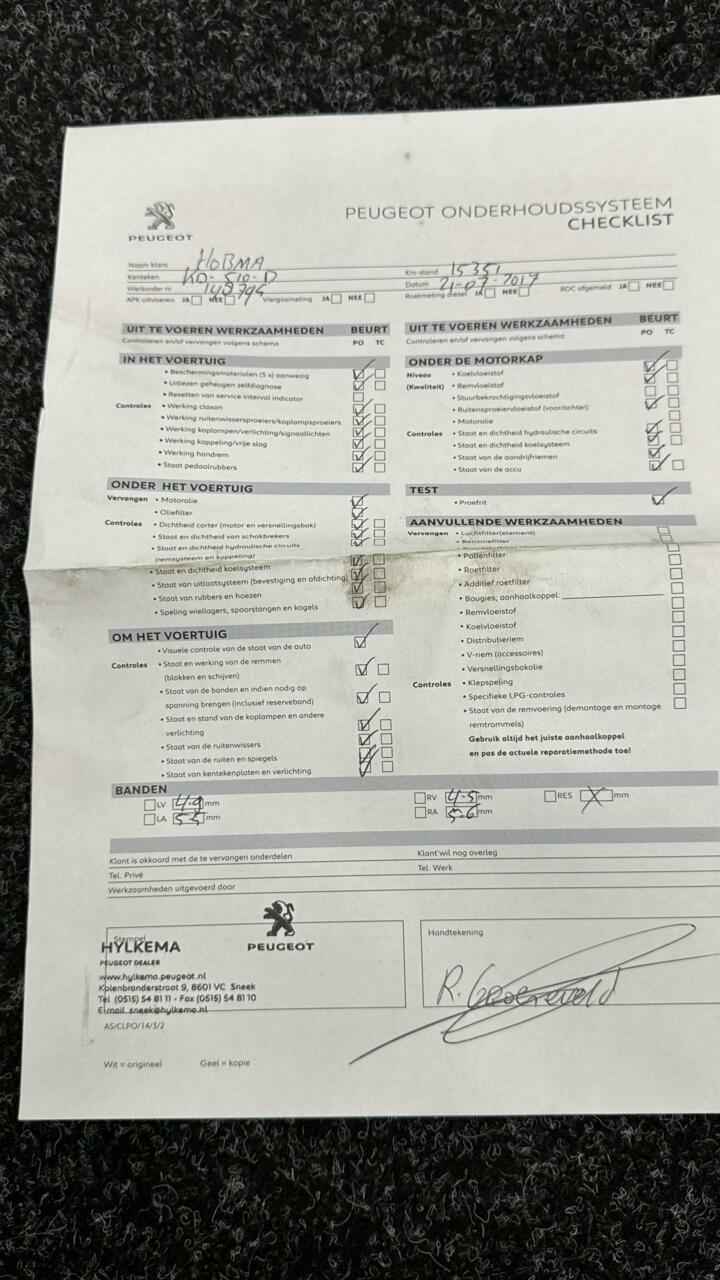 PEUGEOT
PEUGEOT ONDERHOUDSSYSTEEM
CHECKLIST
Naam klant HOBMA
Kenteken KD-510-D
Werkorder nr 148795
APK uitvoeren JA NEE Viergasmeting JA NEE
Km-stand 15351
Datum 21-07-2017
Roetmeting diesel JA NEE RDC afgemeld JA NEE
UIT TE VOEREN WERKZAAMHEDEN BEURT
Controleren en/of vervangen volgens schema PO TC
IN HET VOERTUIG
• Beschermingsmaterialen (5 x) aanwezig
• Uitlezen geheugen zelfdiagnose
• Resetten van service interval indicator
Controles • Werking claxon
• Werking ruitenwissersproeiers/koplampsproeiers
• Werking koplampen/verlichting/signaallichten
• Werking koppeling/vrije slag
• Werking handrem
• Staat pedaalrubbers
ONDER HET VOERTUIG
Vervangen • Motorolie
• Oliefilter
Controles • Dichtheid carter (motor en versnellingsbak)
• Staat en dichtheid van schokbrekers
• Staat en dichtheid hydraulische circuits
(remsysteem en koppeling)
• Staat en dichtheid koelsysteem
• Staat van uitlaatsysteem (bevestiging en afdichting)
• Staat van rubbers en hoezen
• Speling wiellagers, spoorstangen en kogels
OM HET VOERTUIG
• Visuele controle van de staat van de auto
Controles • Staat en werking van de remmen
(blokken en schijven)
• Staat van de banden en indien nodig op
spanning brengen (inclusief reserveband)
• Staat en stand van de koplampen en andere
verlichting
• Staat van de ruitenwissers
• Staat van de ruiten en spiegels
• Staat van kentekenplaten en verlichting
UIT TE VOEREN WERKZAAMHEDEN BEURT
Controleren en/of vervangen volgens schema PO TC
ONDER DE MOTORKAP
Niveau • Koelvloeistof
(Kwaliteit) • Remvloeistof
• Stuurbekrachtigingsvloeistof
• Ruitensproeiervloeistof (voor/achter)
• Motorolie
Controles • Staat en dichtheid hydraulische circuits
• Staat en dichtheid koelsysteem
• Staat van de aandrijfriemen
• Staat van de accu
TEST
• Proefrit
AANVULLENDE WERKZAAMHEDEN
Vervangen • Luchtfilter(element)
• Benzinefilter
• Pollenfilter
• Roetfilter
• Additief roetfilter
• Bougies, aanhaalkoppel:
• Remvloeistof
• Koelvloeistof
• Distributieriem
• V-riem (accessoires)
• Versnellingsbakolie
Controles • Klepspeling
• Specifieke LPG-controles
• Staat van de remvoering (demontage en montage
remtrommels)
Gebruik altijd het juiste aanhaalkoppel
en pas de actuele reparatiemethode toe!
BANDEN
LV 4-9 mm RV 4-5 mm RES X mm
LA 5-5 mm RA 5-6 mm
Klant is akkoord met de te vervangen onderdelen Klant wil nog overleg
Tel. Privé Tel. Werk
Werkzaamheden uitgevoerd door
Stempel
HYLKEMA
PEUGEOT DEALER
PEUGEOT
www.hylkema.peugeot.nl
Kolenbranderstraat 9, 8601 VC Sneek
Tel (0515) 54 81 11 - Fax (0515) 54 81 10
E-mail sneek@hylkema.nl
Handtekening
R. Groeneveld
AS/CLPO/14/3/2
Wit = origineel Geel = kopie